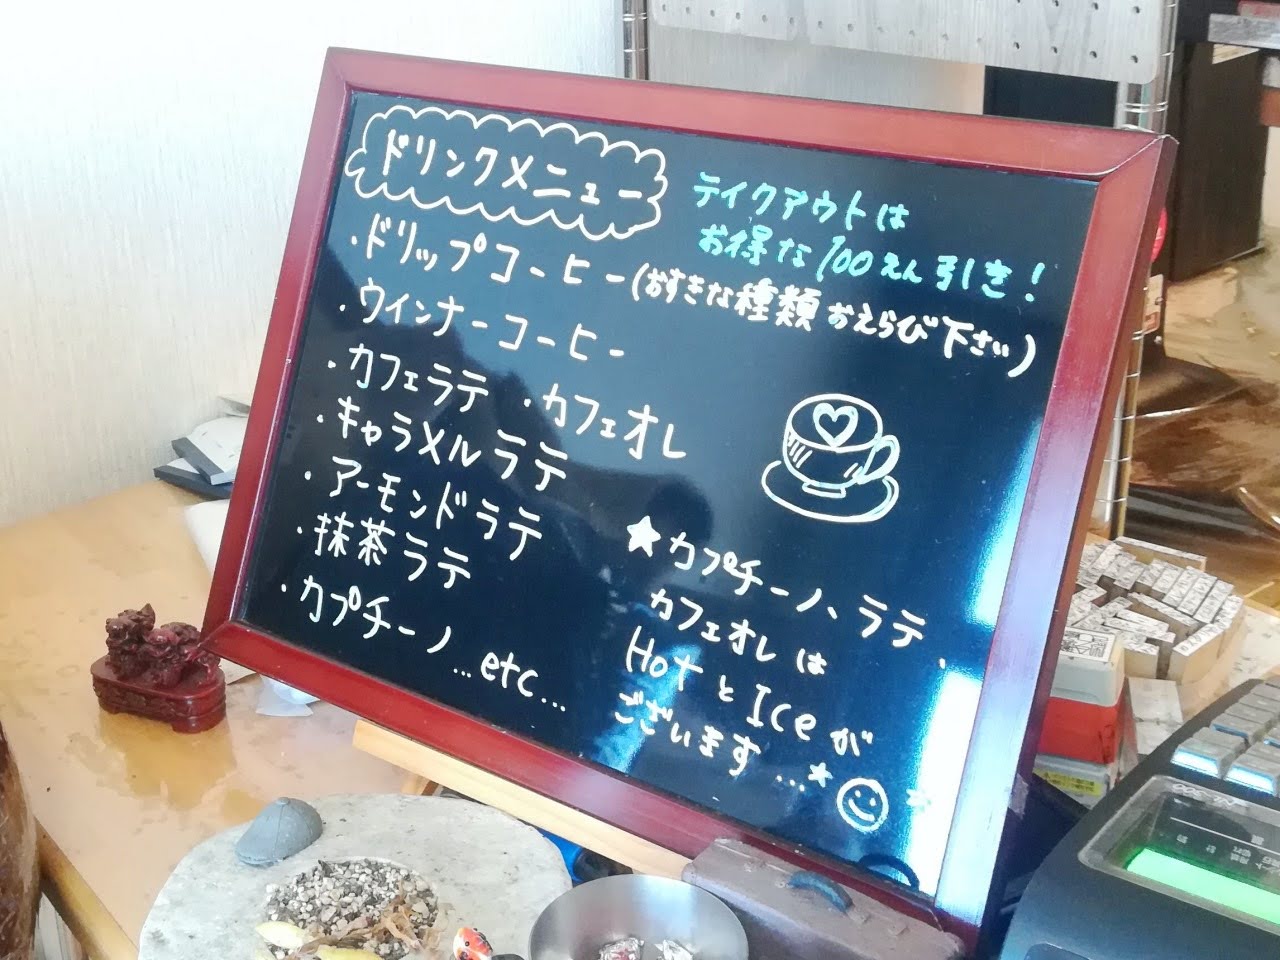 ドリンクメニュー
テイクアウトは
お得な100えん引き!
・ドリップコーヒー(おすきな種類おえらび下さい)
・ウインナーコーヒー
・カフェラテ ・カフェオレ
・キャラメルラテ
・アーモンドラテ
・抹茶ラテ
・カプチーノ...etc...
★カプチーノ、ラテ、
カフェオレは
HotとIceが
ございます...★